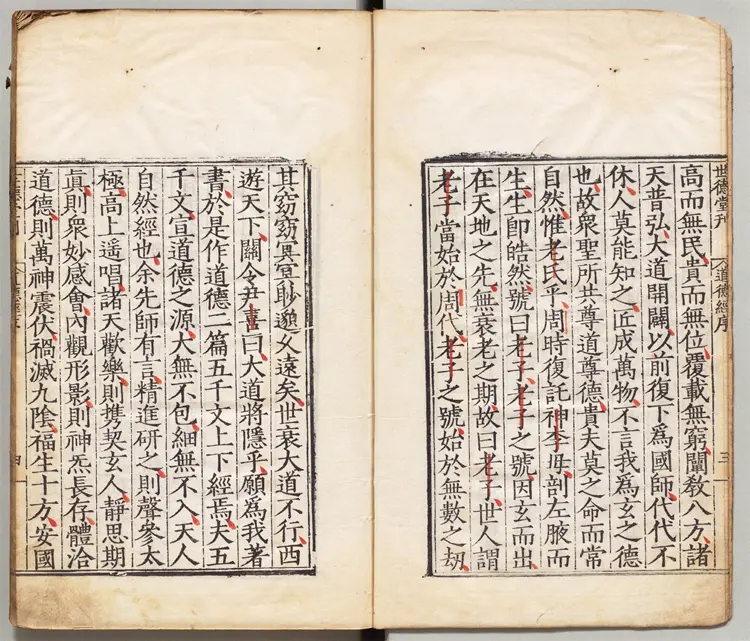 世德堂刊 道德經序 三
高而無民貴而無位覆載無窮闡敎八方諸
天普弘大道開闢以前復下爲國師代代不
休人莫能知之匠成萬物不言我爲玄之德
也故衆聖所共尊道尊德貴夫莫之命而常
自然惟老氏乎周時復託神李母剖左腋而
生生卽皓然號曰老子老子之號因玄而出
在天地之先無衰老之期故曰老子世人謂
老子當始於周代老子之號始於無數之劫
其窈窈冥冥眇邈久遠矣世衰大道不行西
遊天下關令尹喜曰大道將隱乎願爲我著
書於是作道德二篇五千文上下經焉夫五
千文宣道德之源大無不包細無不入天人
自然經也余先師有言精進硏之則聲參太
極高上遥唱諸天歡樂則携契玄人靜思期
眞則衆妙感會內觀形影則神炁長存體洽
道德則萬神震伏禍滅九陰福生十方安國
四